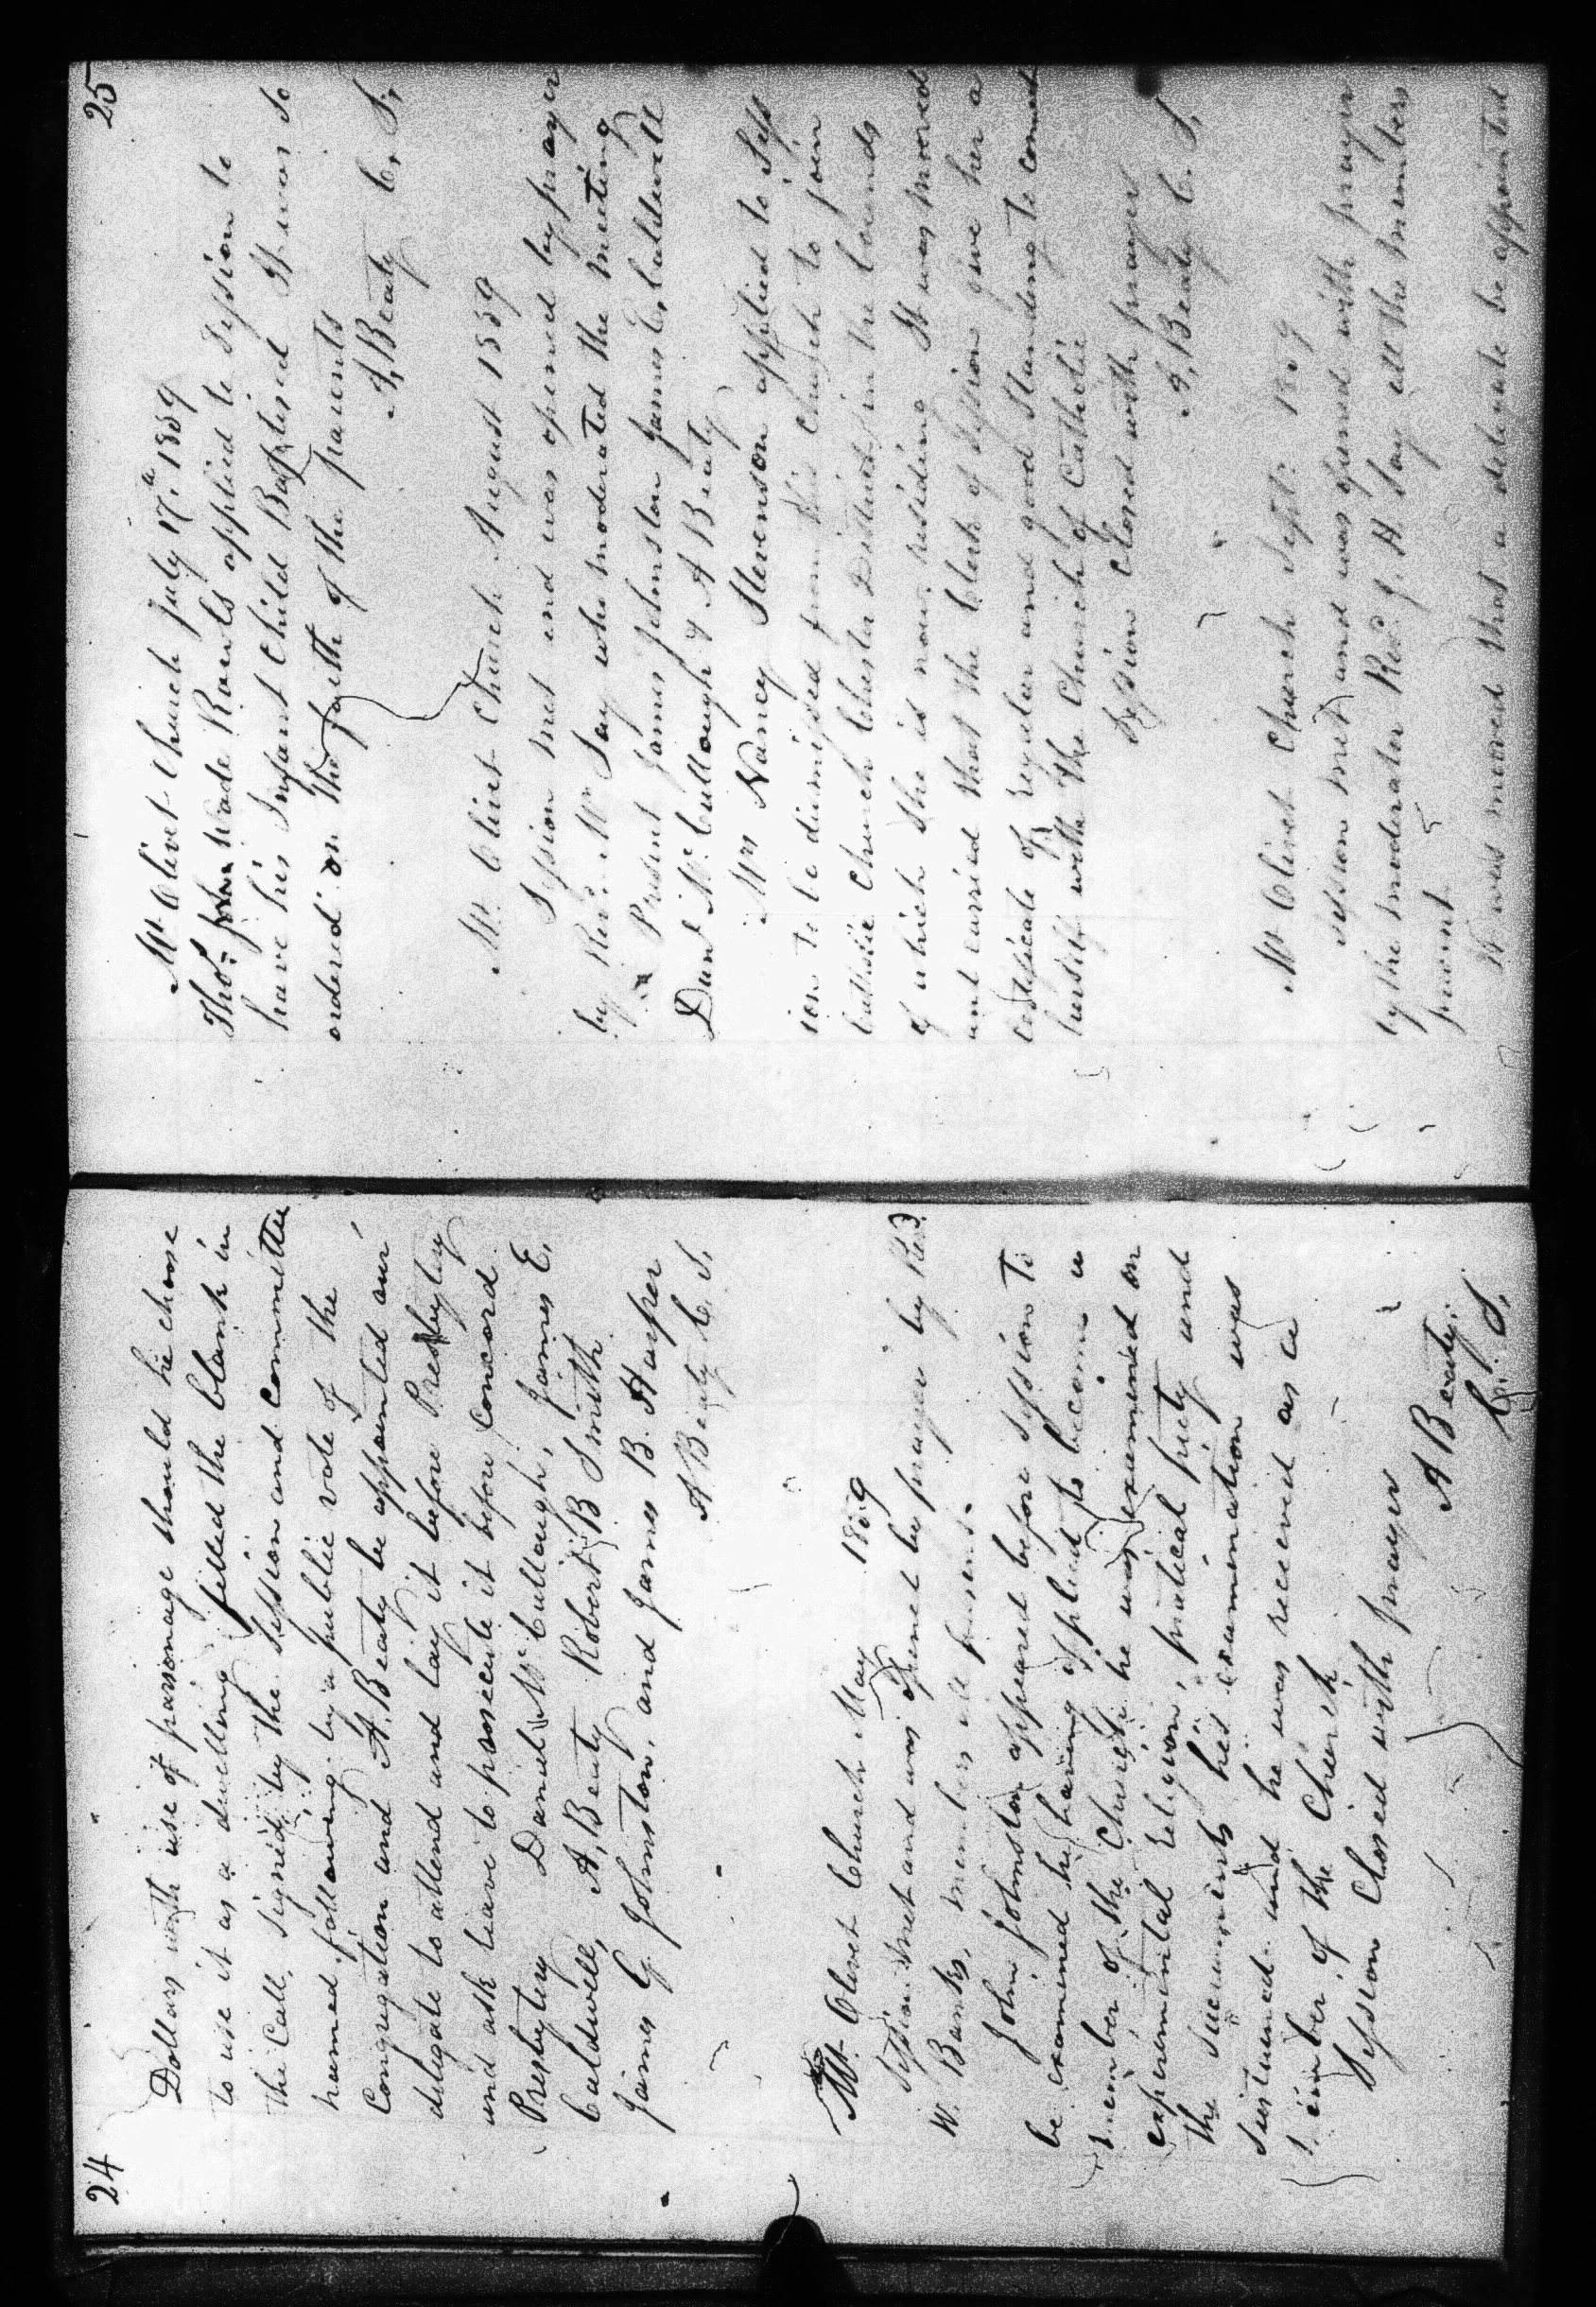 24
Dollars with use of parsonage should he chose
to use it as a dwelling filled the blank in
the Call, signed by the Session and committee
named following by a public vote of the
Congregation and A. Beaty be appointed our
delegate to attend and lay it before Presbytery
and ask leave to prosecute it before Concord
Presbytery Daniel McCullough, James E.
Caldwell, A, Beaty Robert B Smith
James G. Johnston, and James B. Harper
A Beaty C. S.
Mt. Olivet Church May 1859
Session met and was opened by prayer by Revd.
W. Banks, members all present.
John Johnston appeared before session to
be examined he having applied to become a
member of the Church he was examined on
experimental religion, practical piety and
the sacuments his examination was
sustained and he was received as a
member of the Church
Session Closed with prayer
A Beaty.
C. S.
25
Mt Olivet Church July 17. 1859
Thos. Wade Rawls applied to Session to
have his Infant Child Baptised It was so
ordered on the faith of the parents
A, Beaty C, S,
Mt. Olivet Church August 1859
Session met and was opened by prayer
by Rev. Mr Say who moderated the meeting
Present James Johnston James E, Caldwell
Danl McCullough & A Beaty
Mrs Nancy Stevenson applied to Sess
ion to be dismissed from this Church to join
Catholic Church Chester District, in the bounds
of which she is now residing It was moved
and carried that the Clerk of Session give her a
certificate of regular and good standing to connect
herself with the Church of Catholic
Session Closed with prayer
A, Beaty C. S,
Mt Olivet Church Sept: 1859
Session met and was opened with prayer
by the moderator Revd J. H Say all the members
present
It was moved that a delegate be appointed